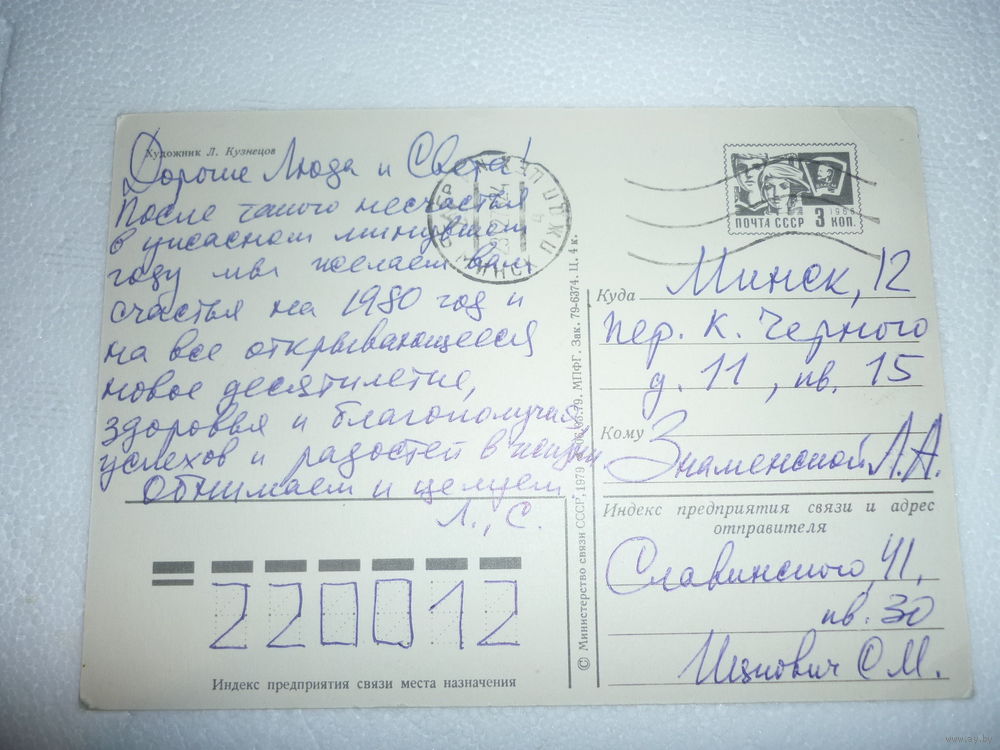 Художник Л. Кузнецов
Дорогие Люда и Света!
После такого несчастья
в ужасном минувшем
году мы желаем вам
счастья на 1980 год и
на все открывающееся
новое десятилетие,
здоровья и благополучия,
успехов и радостей в жизни.
Обнимаем и целуем
Л., С.
220012
Индекс предприятия связи места назначения
МИНСК
© Министерство связи СССР, 1979
79. МПФГ. Зак. 79-6374. Ц. 4 к.
1966
ПОЧТА СССР 3 КОП.
Куда Минск, 12
пер. К. Черного
д. 11, кв. 15
Кому Знаменской Л.А.
Индекс предприятия связи и адрес
отправителя
Славинского, 41,
кв. 30
Ицкович С М.
www.ay.by